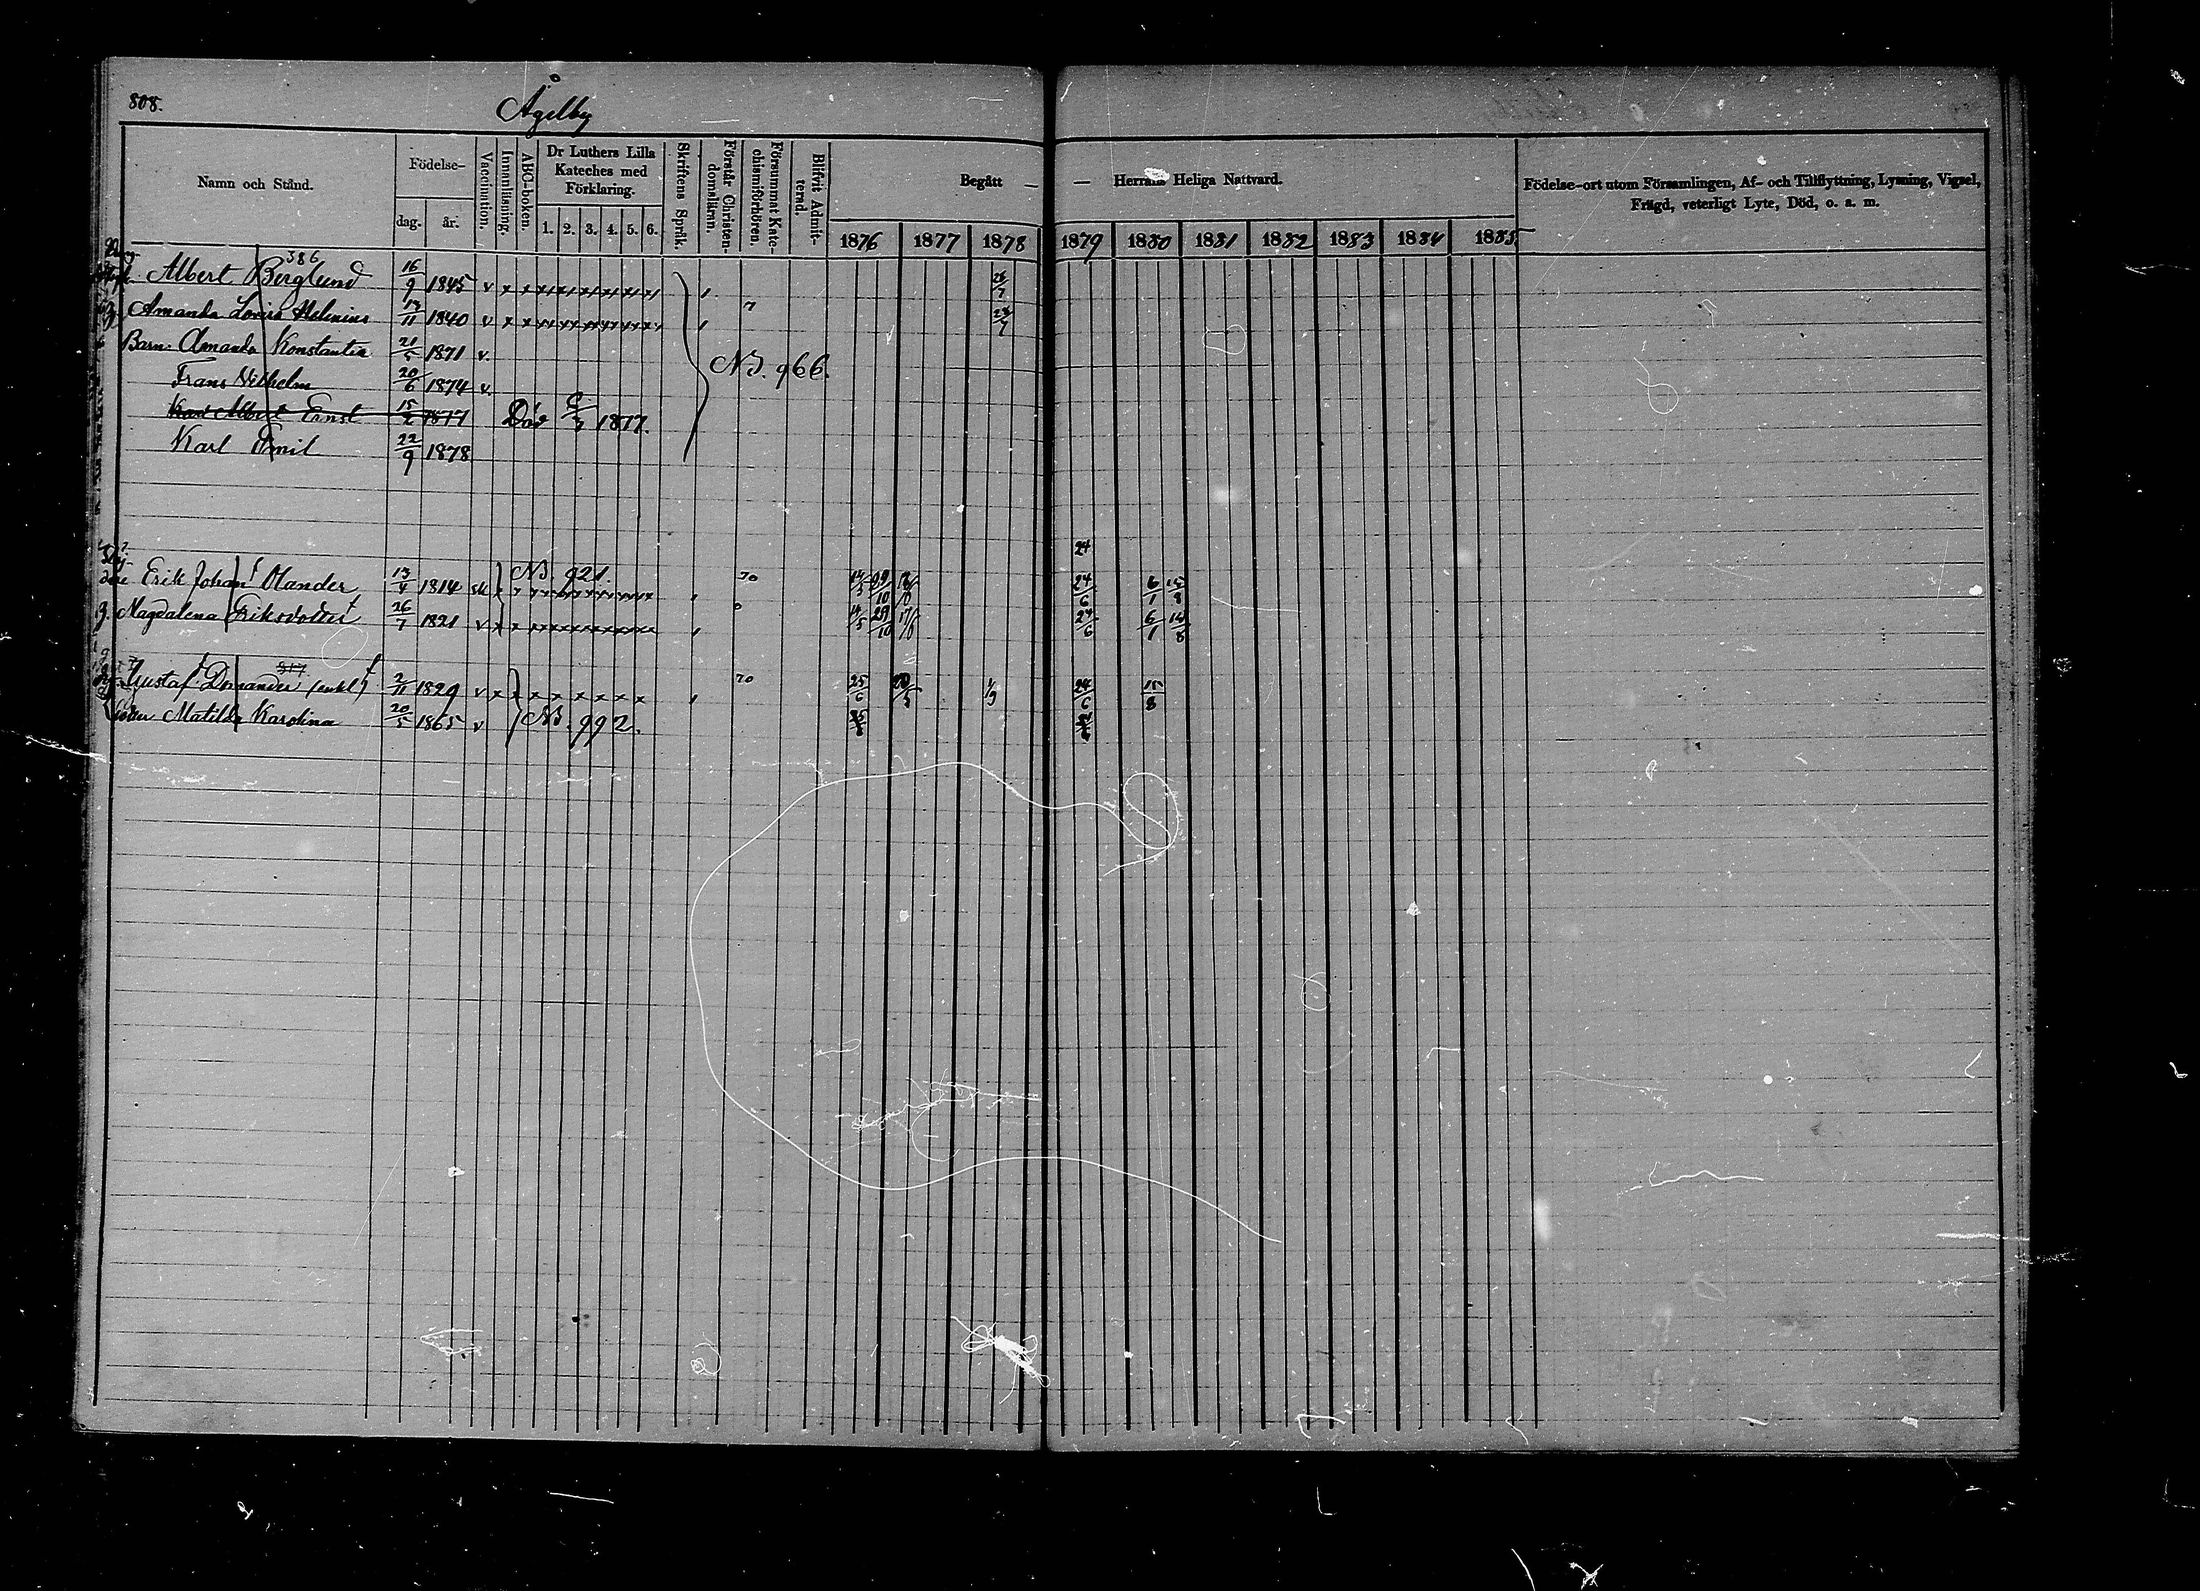 808.
Ågelby
Namn och Stånd.
Födelse-
dag.
år.
Vaccination.
Innanläsning.
ABC-boken.
Dr Luthers Lilla Kateches med Förklaring.
1. 2. 3. 4. 5. 6.
Skriftens Språk.
Förstår Christendomsläran.
Försummat Katechismiförhören.
Blifvit Admitterad.
Begått — — Herrans Heliga Nattvard.
1876 1877 1878 1879 1880 1881 1882 1883 1884 1885
Födelse-ort utom Församlingen, Af- och Tillflyttning, Lysning, Vigsel,
Frägd, veterligt Lyte, Död, o. s. m.
386
Albert Berglund 16/9 1845 v x x 28/7
Amanda Lovisa Helenius 13/11 1840 v x x 7 28/7
Barn. Amanda Konstantia 21/5 1871 v.
N3. 966.
Frans Vilhelm 20/6 1874 v.
Karl Albert Ernst 15/2 1877 Död 1877.
Karl Emil 22/9 1878
24
N3. 921.
Erik Johan Olander 13/4 1814 70 14/5 29/10 24/6 6/1 15/8
Magdalena Eriksdotter 26/7 1821 v x x 14/5 29/10 24/6 6/1 14/8
817
Gustaf Domander (enkl) 2/11 1829 v x x x x x x x x 70 25/6 20/5 1/9 24/6 15/8
Dotter Matilda Karolina 20/5 1865 v N3. 992. 25/6 24/6